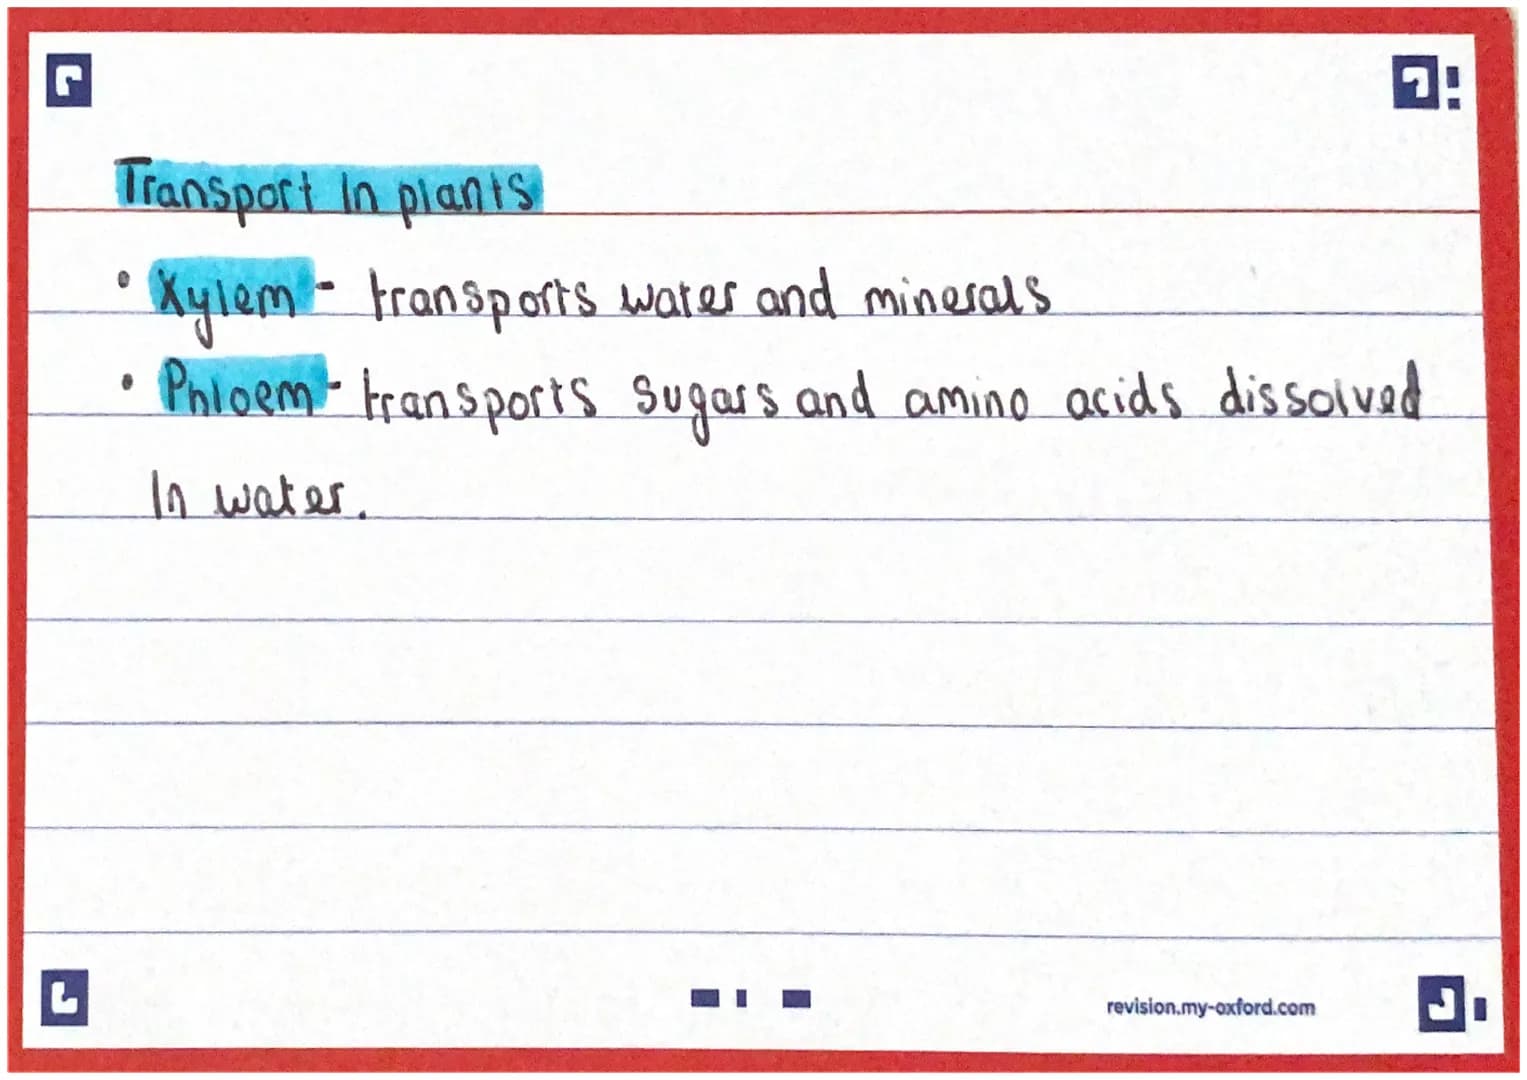 Transport in plants
• Xylem - transports water and minerals
• Phloem - transports sugars and amino acids dissolved
In water.
revision.my-oxford.com